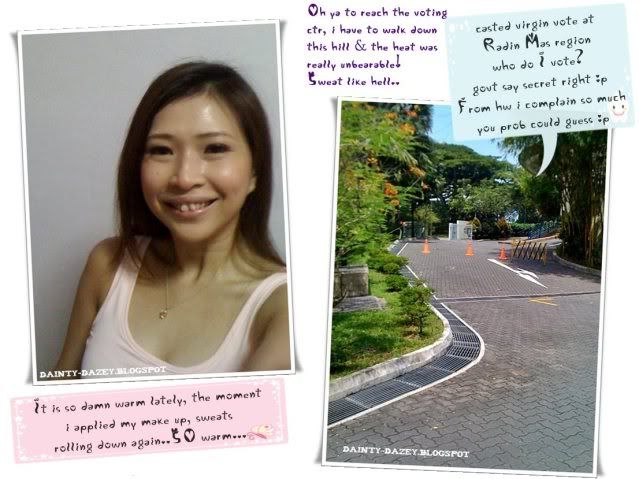 Oh ya to reach the voting
ctr, i have to walk down
this hill & the heat was
really unbearable!
Sweat like hell..
casted virgin vote at
Radin Mas region
who do I vote?
govt say secret right :p
From hw i complain so much
you prob could guess :p
DAINTY-DAZEY.BLOGSPOT
It is so damn warm lately, the moment
i applied my make up, sweats
rolling down again..SO warm...
DAINTY-DAZEY.BLOGSPOT